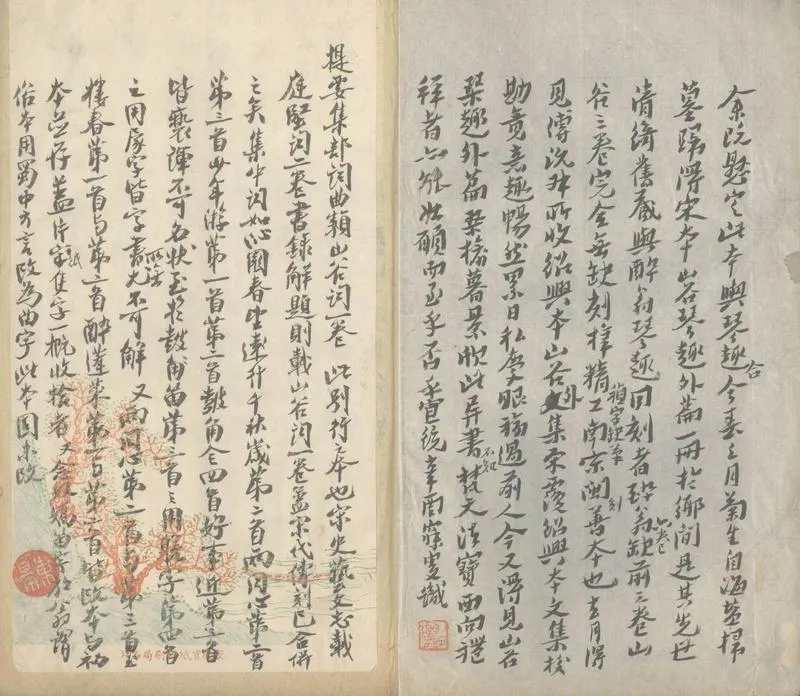 余既懸定此本與琴趣合今春三月菊生自海鹽掃
墓歸得宋本山谷琴趣外篇一冊於鄉間是其先世
清綺舊藏與醉翁琴趣同刻者醉翁缺前三卷山
谷三卷完全無缺刻樣精工禎字缺筆南宋閩刻善本也去月得
見傅沅叔所收紹興本山谷外集宋紹興本文集校
勘竟意趣暢然累日私眼福過前人今又得見山谷
琴趣外篇桑榆暮景此異書不知梵天法寶西向禮
拜者亦能壯顧而至乎否乎宣統辛酉寐叟識
提要集部詞曲類山谷詞一卷 此別行之本也宋史藝文志載
庭堅詞二卷書錄解題則載山谷詞一卷蓋宋代傳刻已合併
之矣集中詞如沁園春望遠行千秋歲第二首兩同心第二首
第三首少年游第一首第二首鼓角令四首好事近第三首
皆褻諢不可名狀至於鼓角笛第三首之用字第四首
之用字皆字書尤不可解 又兩同心第二首與第三首玉
樓春第一首與第二首醉蓬萊第一首與第二首皆改本與初
本並存蓋片紙隻字一概收拾者又念奴嬌曲字放翁謂
俗本用蜀中方言改為曲字此本固未改